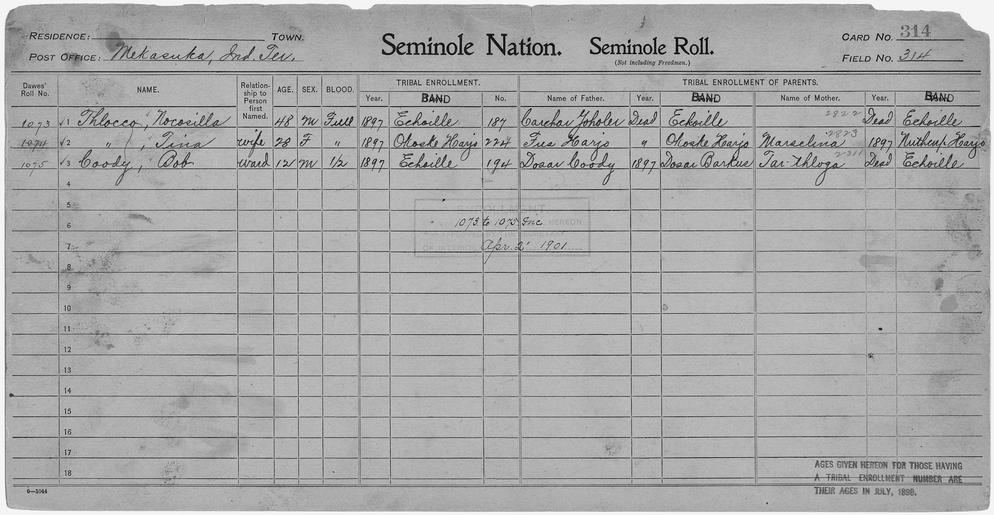 RESIDENCE: TOWN. Seminole Nation. Seminole Roll. CARD NO. 314
POST OFFICE: Mekasuka, Ind. Ter. (Not including Freedmen.) FIELD NO. 314
Dawes' Roll No. NAME. Relationship to Person first Named. AGE. SEX. BLOOD. TRIBAL ENROLLMENT. TRIBAL ENROLLMENT OF PARENTS.
Year. BAND No. Name of Father. Year. BAND Name of Mother. Year. BAND
2822
1073 1 Thlocco, Nocosilla 48 M Full 1897 Echoille 187 Carchar Yoholer Dead Echoille Dead Echoille
2823
1074 2 " , Tina wife 28 F " 1897 Okoske Harjo 224 Fus Harjo " Okoske Harjo Marselina 1897 Nuthcup Harjo
2311
1075 3 Coody, Bob ward 12 M 1/2 1897 Echoille 194 Dosar Coody 1897 Dosar Barkus Tar-thloga Dead Echoille
4
5
ENROLLMENT
6 1073 to 1075 Inc HEREON
7 OF INTERIOR Apr. 2 1901
8
9
10
11
12
13
14
15
16
17
18
AGES GIVEN HEREON FOR THOSE HAVING
A TRIBAL ENROLLMENT NUMBER ARE
THEIR AGES IN JULY, 1898.
6—1044